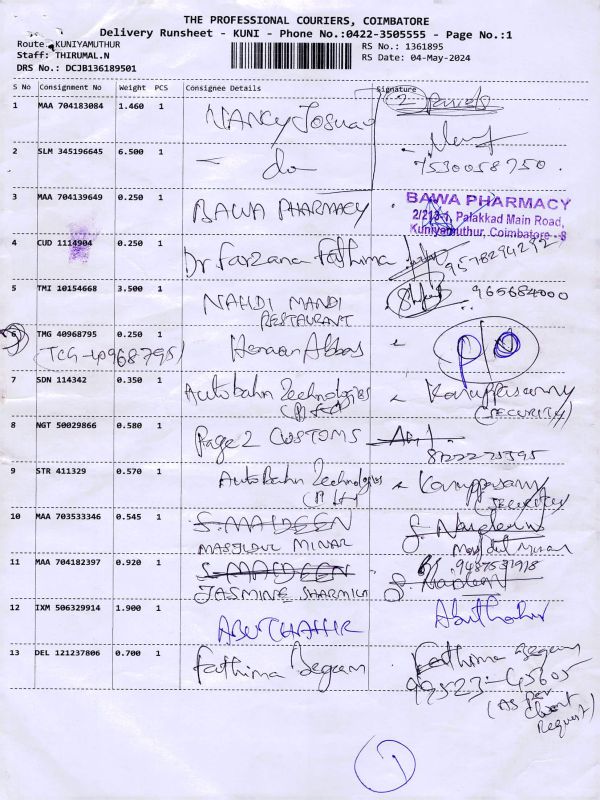 THE PROFESSIONAL COURIERS, COIMBATORE
Delivery Runsheet - KUNI - Phone No.:0422-3505555 - Page No.:1
Route. KUNIYAMUTHUR RS No.: 1361895
Staff: THIRUMAL.N RS Date: 04-May-2024
DRS No.: DCJB136189501
S No Consignment No Weight PCS Consignee Details Signature
1 MAA 704183084 1.460 1 NANCY Josua 2
2 SLM 345196645 6.500 1 - do 7530058750.
3 MAA 704139649 0.250 1 BAWA PHARMACY BAWA PHARMACY
2/213-1, Palakkad Main Road,
Kuniyamuthur, Coimbatore - 8
4 CUD 1114904 0.250 1 Dr Farzana Fathima 9578294292
5 TMI 10154668 3.500 1 NAHDI MANDI
RESTAURANT 965684000
6 TMG 40968795 0.250 1 Abbas
(TCG-40968795)
7 SDN 114342 0.350 1 Autobahn Technologies Karuppasamy
(SECURITY)
8 NGT 50029866 0.580 1 Page 2 CUSTOMS
9 STR 411329 0.570 1 AutoBahn Technologies Karuppasamy
(SECURITY)
10 MAA 703533346 0.545 1 S. MAIDEEN
MASJIDUL MINAR
11 MAA 704182397 0.920 1 S. MAIDEEN 9487531918
JASMINE SHARMILA
12 IXM 506329914 1.900 1 ABUTHAHIR Abuthahir
13 DEL 121237806 0.700 1 Fathima Begum Fathima Begum
99523-45605
(AS Per
Client
Request)
1